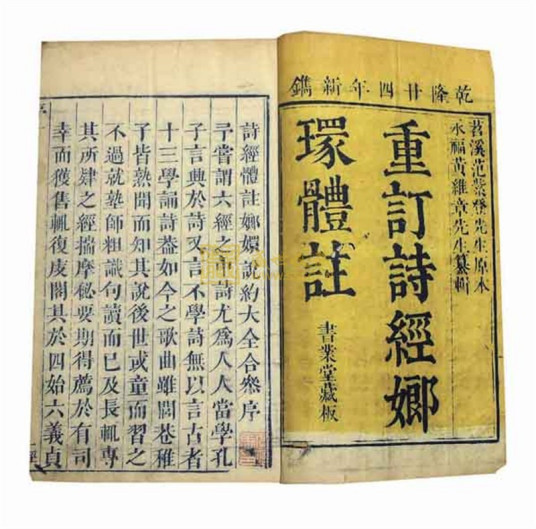 乾隆廿四年新鐫
苕溪范紫登先生原本
永福黃維章先生纂輯
重訂詩經嫏
環體註
書業堂藏板
詩經體註嫏嬛說約大全合叅序
予嘗謂六經之中詩尤爲人人當學孔
子言興於詩又言不學詩無以言古者
十三學誦詩葢如今之歌曲雖閭巷稚
子皆熟聞而知其說後世或童而習之
不過就塾師粗識句讀而已及長輒專
其所肄之經揣摩秘要期得薦於有司
幸而獲售輒復庋閣其於四始六義貞